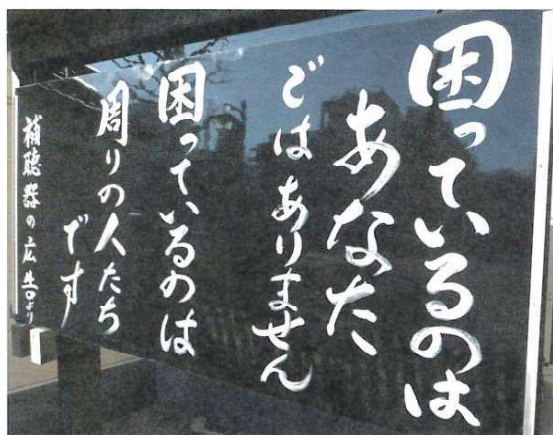 困っているのは
あなた
ではありません
困っているのは
周りの人たち
です
補聴器の広告より